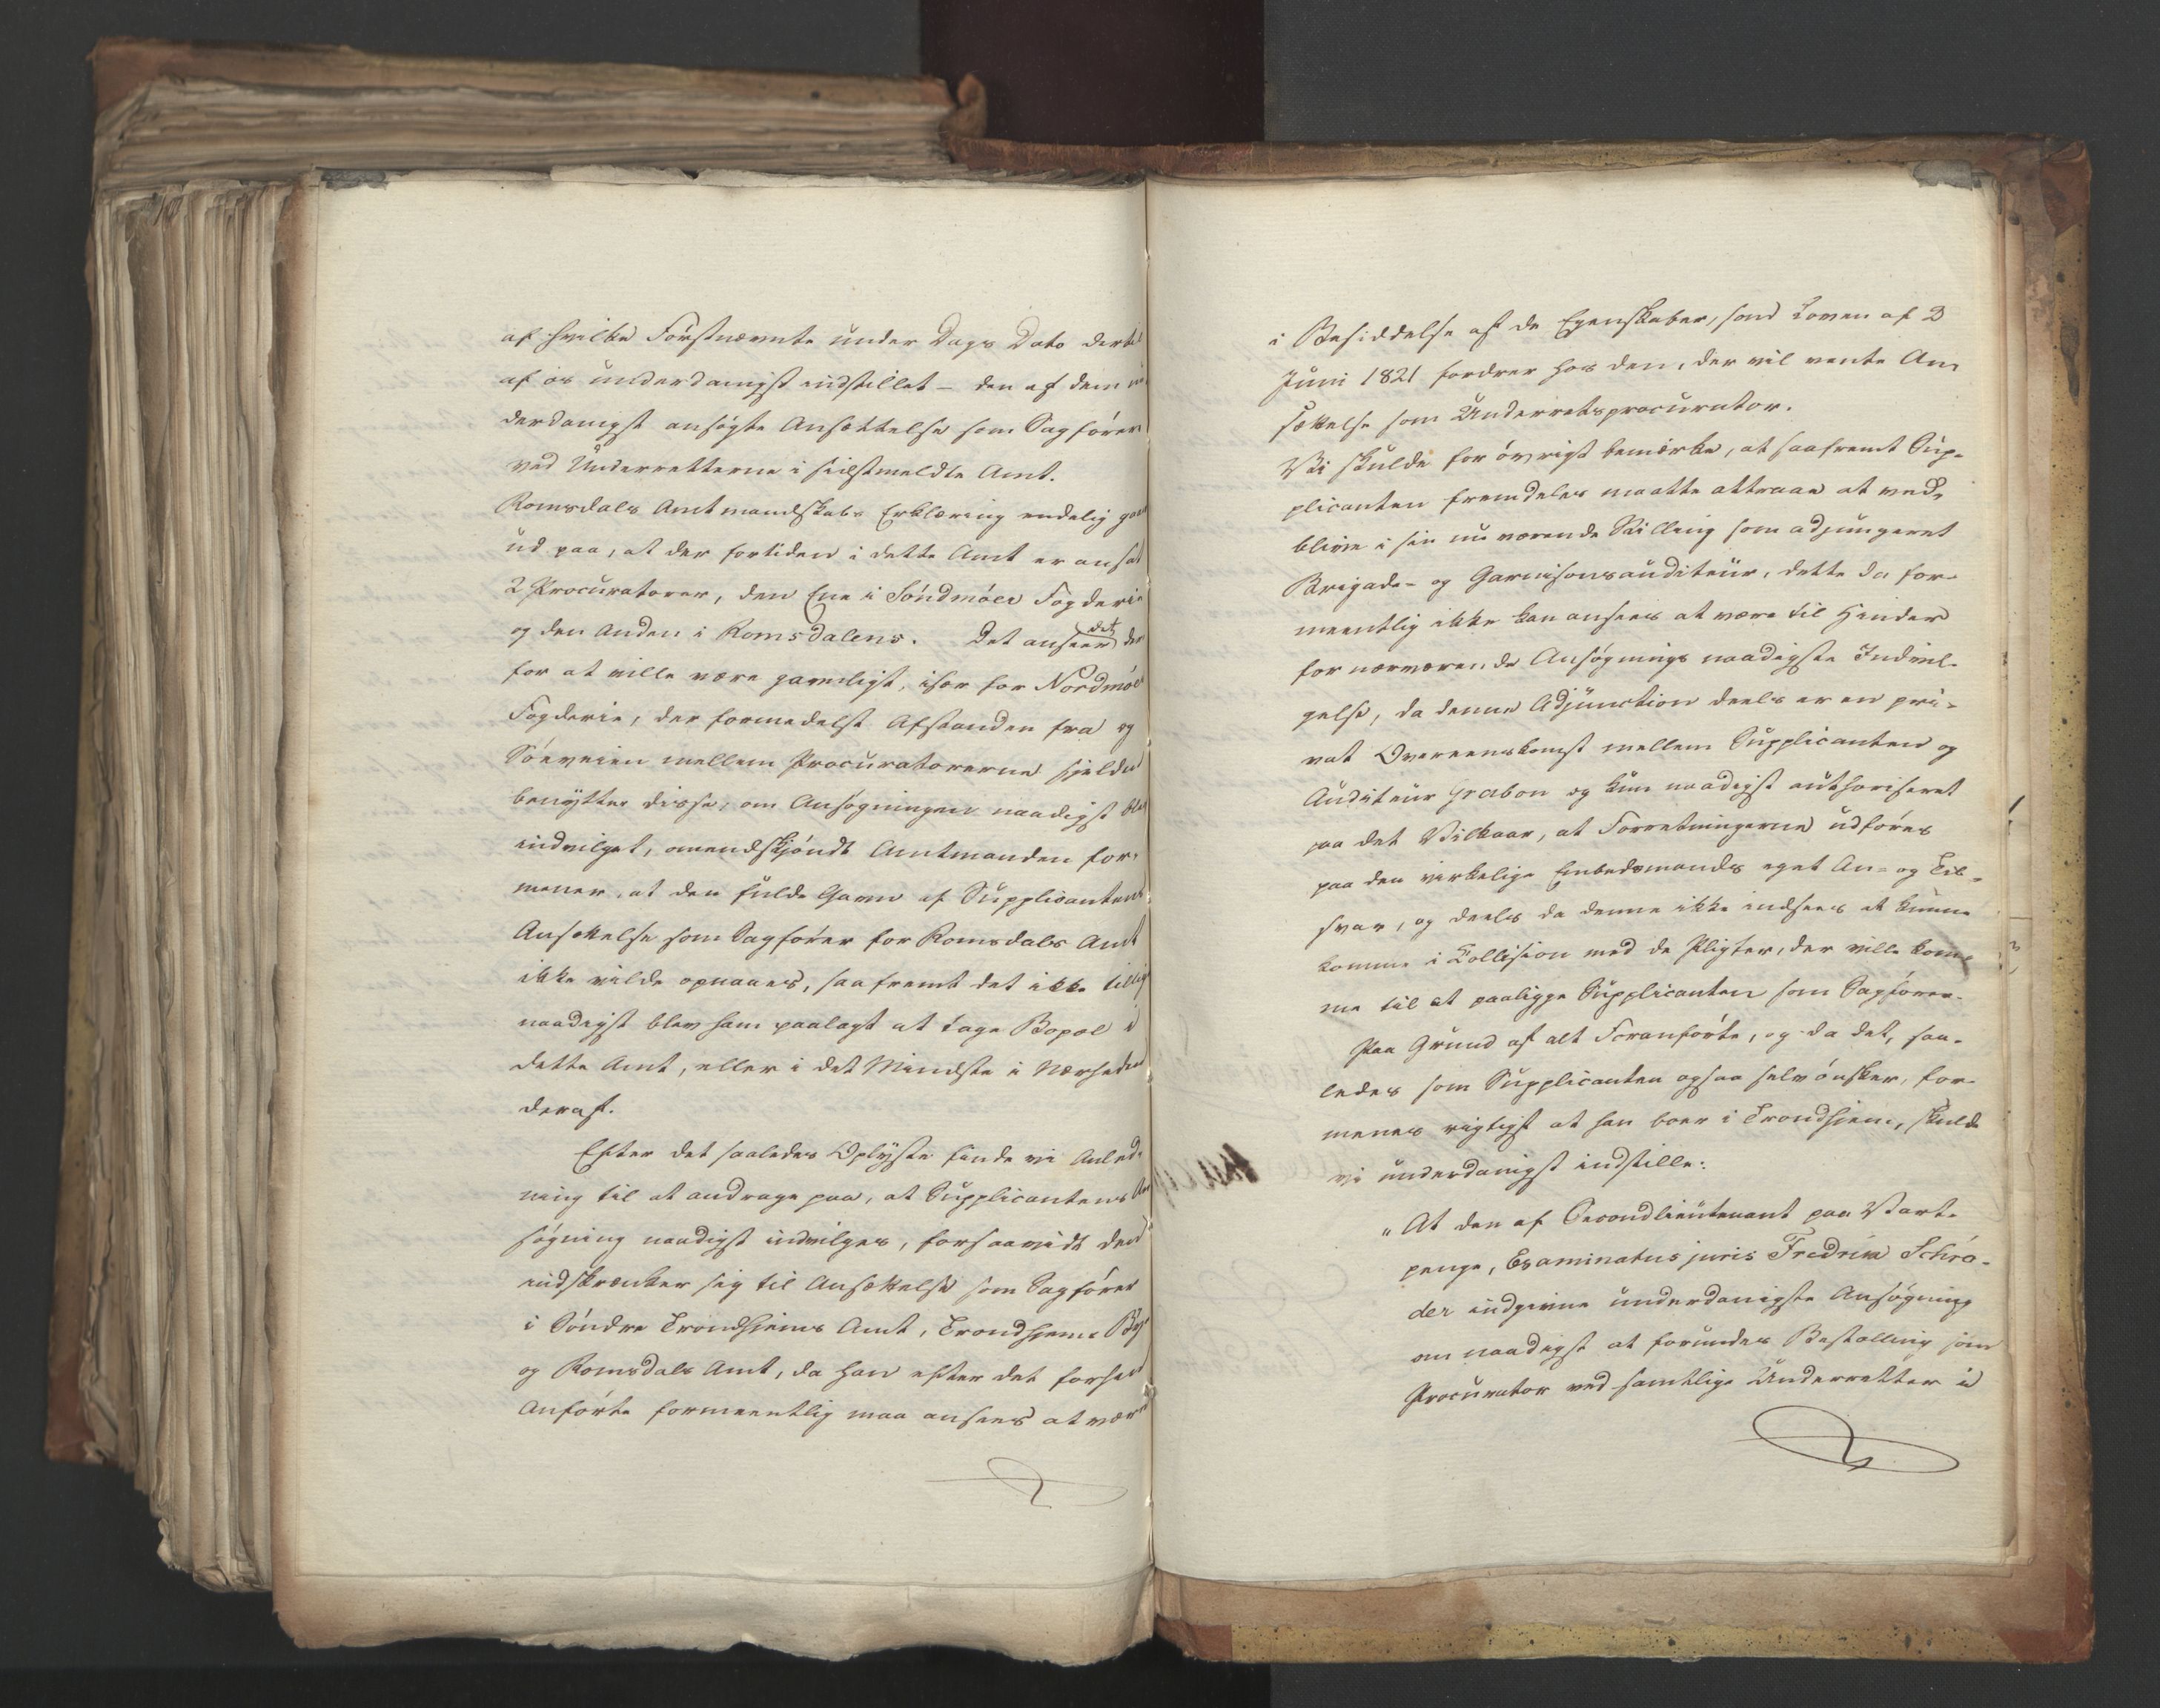 af hvilke Förstnævnte under Dags Dato dertil
af os underdanigst indstillet – den af dem un
derdanigst ansögte Ansættelse som Sagförer
ved Underretterne i sidstmeldte Amt.
Romsdals Amtmandskabs Erklæring endelig gaaer
ud paa, at der fortiden i dette Amt er ansat
2 Procuratorer, den Ene i Söndmöers Fogderie
og den Anden i Romsdalens. Det anseer det der
for at ville være gavnligt, især for Nordmöers
Fogderie, der formedelst Afstanden fra og
Söeveien mellem Procuratorerne sjelden
benytter disse, om Ansögningen naadigst blev
indvilget, omendskjöndt Amtmanden for-
mener, at den fulde Gavn af Supplicantens
Ansættelse som Sagförer for Romsdals Amt
ikke vilde opnaaes, saafremt det ikke tillige
naadigst blev ham paalagt at tage Bopæl i
dette Amt, eller i det Mindste i Nærheden
deraf.
Efter det saaledes Oplyste finde vi Anled-
ning til at andrage paa, at Supplicantens An
sögning naadigst indvilges, forsaavidt den
indskrænker sig til Ansættelse som Sagförer
i Söndre Trondhjems Amt, Trondhjems By
og Romsdals Amt, da han efter det forhen
Anförte formeentlig maa ansees at være
i Besiddelse af de Egenskaber, som Loven af 2
Juni 1821 fordrer hos den, der vil vente An
sættelse som Underretsprocurator.
Vi skulde for övrigt bemærke, at saafremt Sup-
plicanten fremdeles maatte attraae at ved-
blive i sin nu værende Stilling som adjungeret
Brigade- og Garnisonsauditeur, dette da for-
meentlig ikke kan ansees at være til Hinder
for nærværende Ansögnings naadigste Indvil-
gelse, da denne Adjunction deels er en pri-
vat Overeenskomst mellem Supplicanten og
Auditeur Grabow og kun naadigst authoriseret
paa det Vilkaar, at Forretningerne udföres
paa den virkelige Embedsmands eget An- og Til-
svar, og deels da denne ikke indsees at kunne
komme i Collision med de Pligter, der ville kom-
me til at paaligge Supplicanten som Sagförer.
Paa Grund af alt Foranförte, og da det, saa-
ledes som Supplicanten ogsaa selv önsker, for-
menes rigtigst at han boer i Trondhjem, skulde
vi underdanigst indstille:
„At den af Secondlieutenant paa Varte-
penge, Examinatus juris Fredrik Schrö-
der indgivne underdanigste Ansögning
om naadigst at forundes Bestalling som
Procurator ved samtlige Underretter i